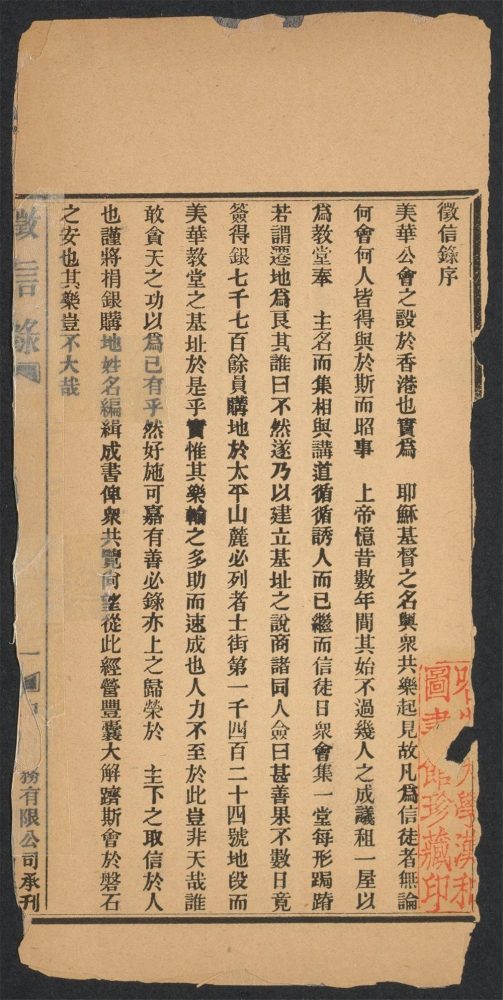 徵信錄序
美華公會之設於香港也實為　耶穌基督之名與眾共樂起見故凡為信徒者無論
何會何人皆得與於斯而昭事　上帝憶昔數年間其始不過幾人之成議租一屋以
為教堂奉　主名而集相與講道循循誘人而已繼而信徒日眾會集一堂每形跼蹐
若謂遷地為良其誰曰不然遂乃以建立基址之說商諸同人僉曰甚善果不數日竟
簽得銀七千七百餘員購地於太平山麓必列者士街第一千四百二十四號地段而
美華教堂之基址於是乎實惟其樂輸之多助而速成也人力不至於此豈非天哉誰
敢貪天之功以為已有乎然好施可嘉有善必錄亦上之歸榮於　主下之取信於人
也謹將捐銀購地姓名編緝成書俾眾共覽尚望從此經營豐囊大解躋斯會於磐石
之安也其樂豈不大哉
徵信錄
一
務有限公司承刊
學漢和
圖書館珍藏印